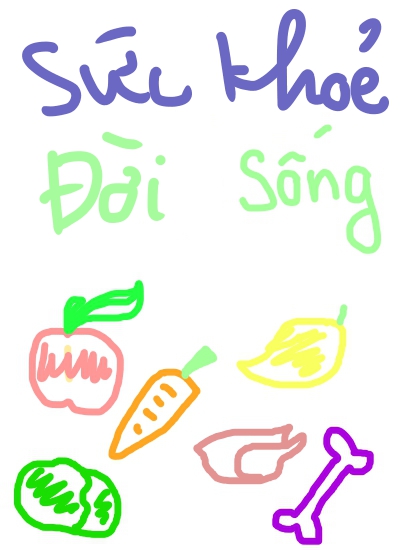 Sức khoẻ
Đời Sống